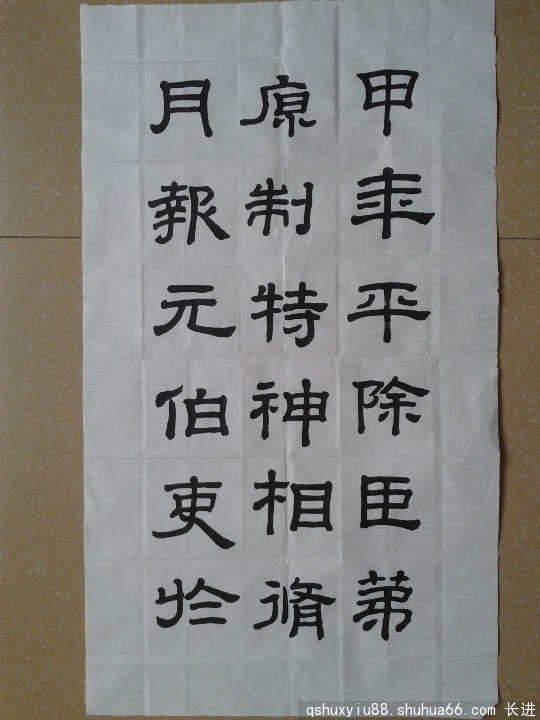 甲年平除臣苐
原制特神相脩
月報元伯吏於
qshuxyiu88.shuhua66.com 长进